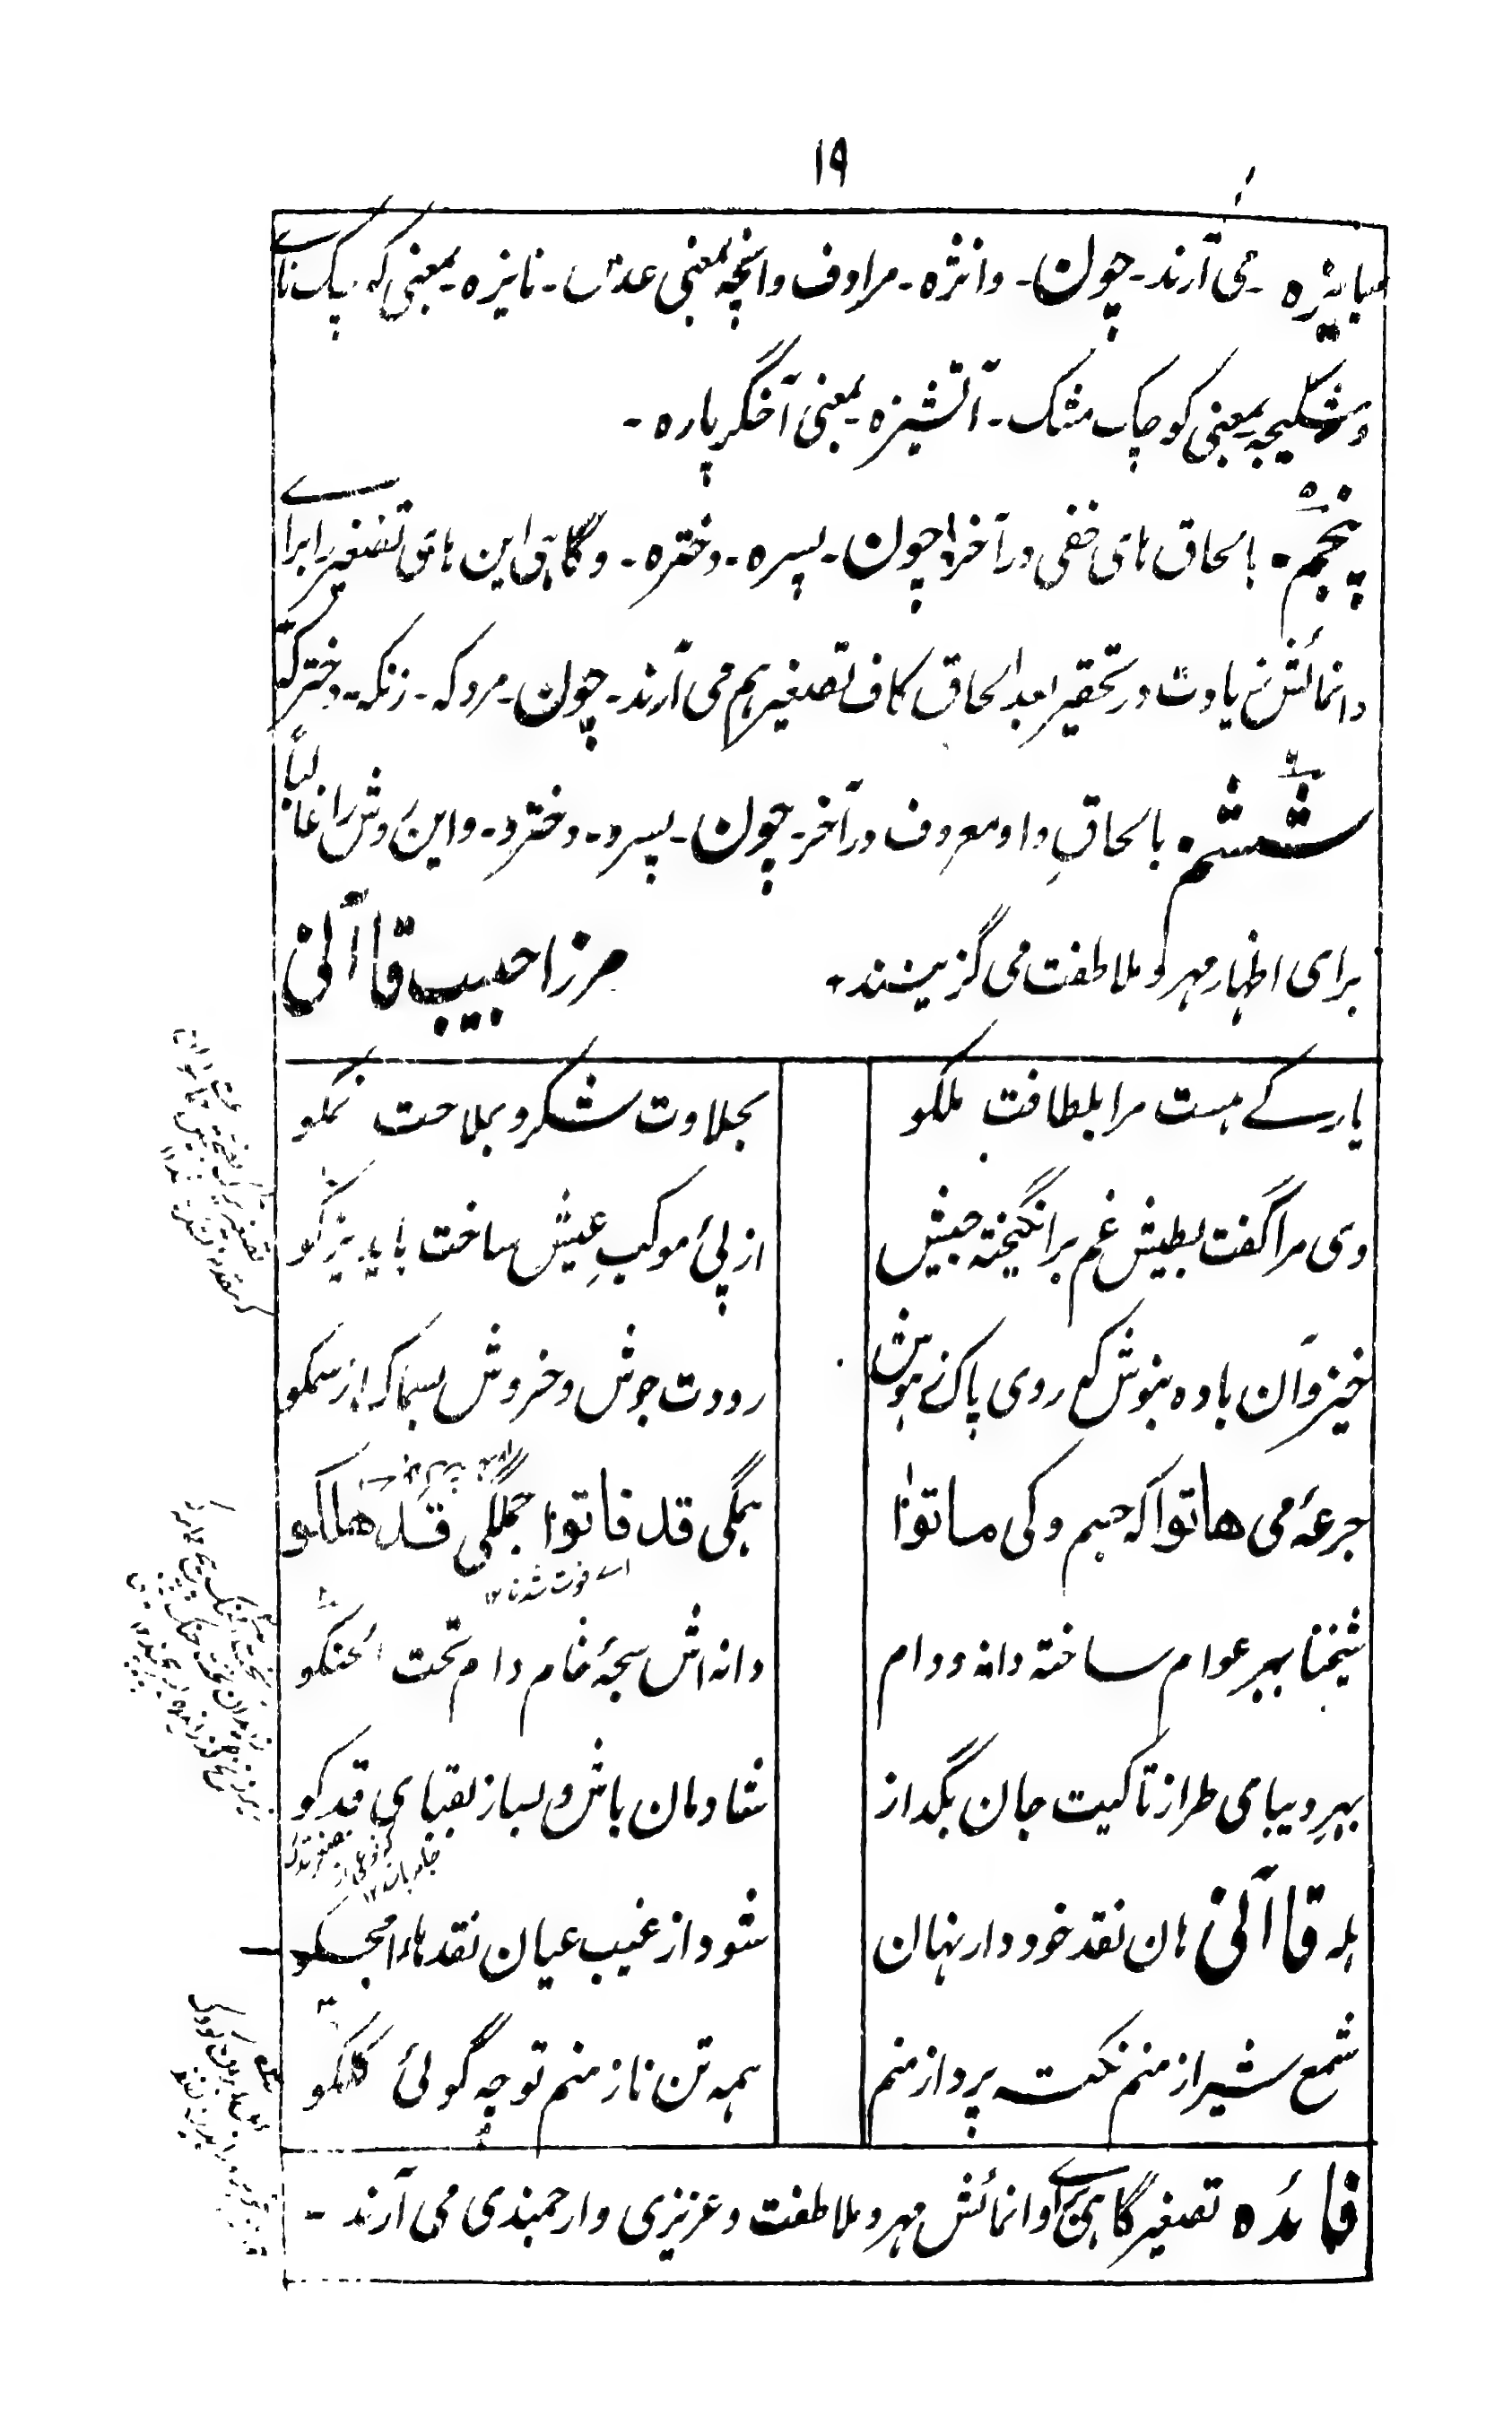 ۱۹
می آرند - چون - وانژه - مرادف وانچه بمعنی عدس - نایزه - بمعنی کوچک نای
و مشکیچه بمعنی کوچک مشک - آتشیزه - بمعنی آخگر پاره -
پنجم - بالحاق های خفی در آخر چون - پسره - دختره - و گاهی این های تصغیر را برای
وانمائش زیادت در تحقیر بعد الحاق کاف تصغیر هم می آرند - چون - مردکه - زنکه - دخترکه
ششم - بالحاقِ واو معروف در آخر - چون - پسرو - دخترو - و این روش را غالباً
برای اظهار مهر و ملاطفت می گزینند -
مرزا حبیب قاآنی
یارکے هست مرا بلطافت ملکو
بحلاوت شکرو بملاحت نمکو
دی مرا گفت بطیش غم برانگیخته جیش
از پیٔ موکبِ عیش ساخت باید یزکو
خیز و آن باده بنوش کم روی پاک ز هوش
رودت جوش و خروش بسما که از سمکو
جرعهٔ می هاتوا که جم و کی ماتوا
همگی قد فاتوا جملگی قد هلکو
اے فوت شدند ۱۲
شیخنا بهر عوام ساخته دانه و دام
دانه اش سبحهٔ خام دام تحت الحنکو
بهرِ دیبای طراز تا کیت جان بگداز
شادمان باش و بساز بقبای قدکو
هله قاآنی هان نقد خود دار نهان
شود از غیب عیان نقدها را محکو
شمع شیراز منم نکته پرداز منم
همه تن ناز منم تو چه گوئی کلکو
فائده تصغیر گاهی برای وانمائش مهر و ملاطفت و عزیزی و ارجمندی می آرند -